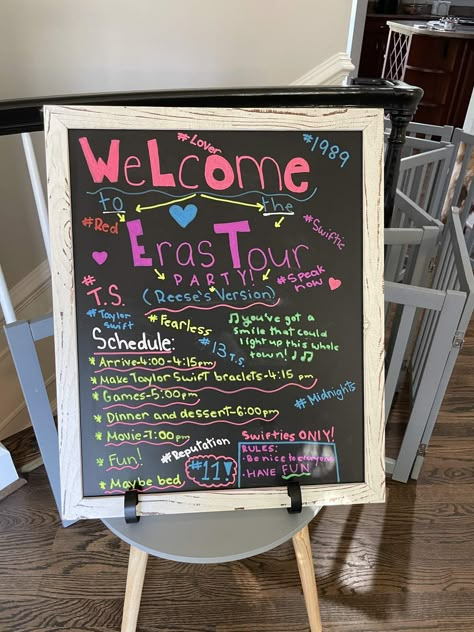 #Lover
#1989
WeLcome
to the
#Red
#Swiftie
Eras Tour
PARTY!
#Speak
now
#
T.S.
(Reese's Version)
#Taylor
swift
#Fearless
♫ you've got a
smile that could
light up this whole
town! ♪♫
#13 T.S.
Schedule:
* Arrive-4:00-4:15pm
* Make Taylor Swift braclets-4:15 pm
* Games-5:00pm
#Midnights
* Dinner and dessent-6:00pm
* Movie-7:00pm
#Reputation
Swifties ONLY!
* Fun!
#11
RULES:
• Be nice to everyone
• HAVE FUN
* Maybe bed